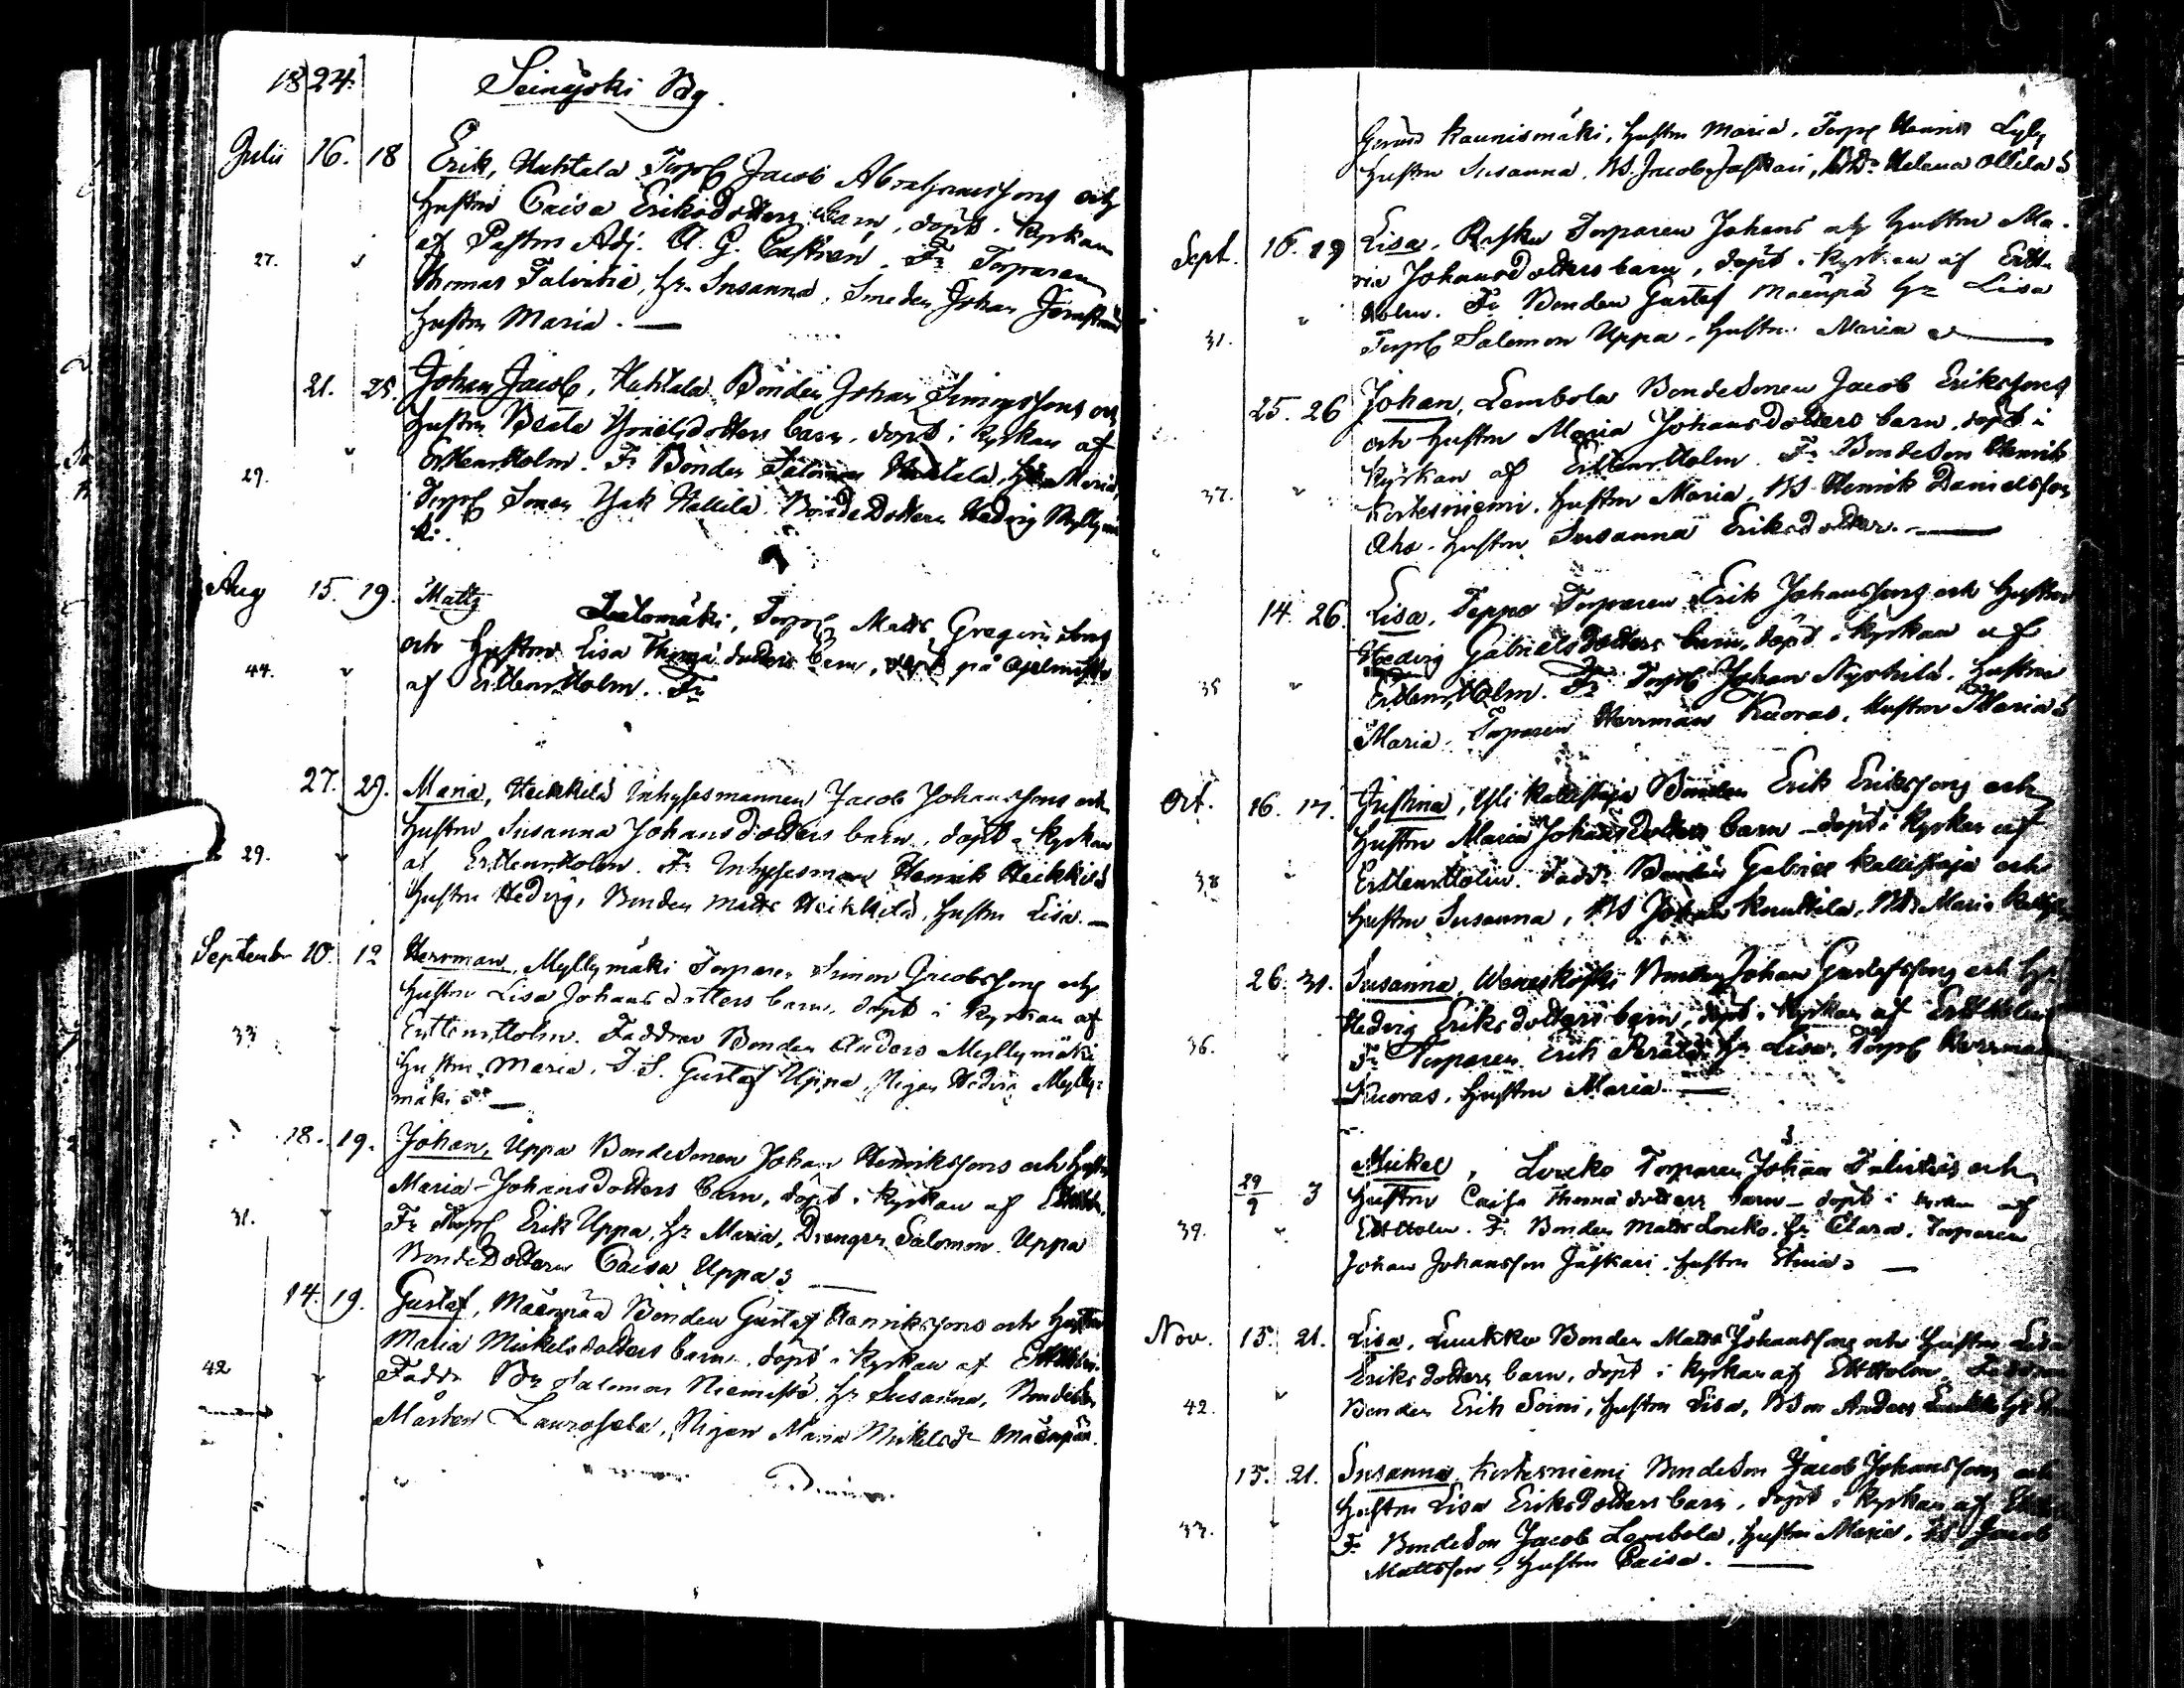 1824. Seinäjoki By.
Julii 16. 18 Erik, Uuhtala Torp Jacob Abrahamssons och
hustru Caisa Eriksdotters barn, döpt i kyrkan
af Pastors Adj. A. G. Castrén. Fr Torparen
27. Thomas Talvitie, hr Susanna, Smeden Johan
hustru Maria.
21. 25. Johan Jacob, Uuhtala Bonden Johan Simonssons och
hustru Beata dotters barn, döpt i kyrkan af
29. Ertlenholm. Fr Bonden Salomon Uuhtala, hr Maria
Torp Hallila Bondedottern Hedvig Myllymä
ki.
Aug 15. 19. Matts
Matts
och hustru Lisa Thomædotters barn, döpt på
44. af Ertlenholm. Fr
27. 29. Maria, Heikkilä Inhysesmannen Jacob Johanssons och
hustru Susanna Johansdotters barn, döpt i kyrkan
29. af Ertlenholm. Fr Inhysesman Henrik Heikkilä
hustru Hedvig, Bonden Matts Heikkilä, hustru Lisa.
September 10. 12 Herrman, Myllymäki Torparen Simon Jacobssons och
hustru Lisa Johansdotters barn, döpt i kyrkan af
33 Ertlenholm. Faddrar Bonden Anders Myllymäki
hustru Maria, D. S. Gustaf Uppa, Pigan Hedvig Mylly-
mäki
18. 19. Johan, Uppa Bondesonen Johan Henrikssons och hustru
Maria Johansdotters barn, döpt i kyrkan af
31. Fr Torp Erik Uppa, hr Maria, Drengen Salomon Uppa
Bondedottern Caisa Uppa
14. 19. Gustaf, Mäenpää Bonden Gustaf Henrikssons och hustru
Maria Mickelsdotters barn, döpt i kyrkan af
42 Faddr Bn Salomon Niemistö, hr Susanna, Bondeson
Mårten Laurosela, Pigan Maria Mickelsdr Mäenpää.
Kaunismäki, hustru Maria, Torp Henrik Lyly
hustru Susanna, BS. Jacob Jaskari, BDr Helena Ollila
Sept. 16. 19 Lisa, Torparen Johans och hustru Ma-
ria Johansdotters barn, döpt i kyrkan af Ertlen
holm. Fr Bonden Gustaf Mäenpää hr Lisa
31. Torp Salomon Uppa, hustru Maria
25. 26 Johan, Lembola Bondesonen Jacob Erikssons
och hustru Maria Johansdotters barn, döpt i
kyrkan af Ertlenholm. Fr Bondeson Henrik
37. Kortesniemi, hustru Maria, BS Henrik Danielsson
Aho, hustru Susanna Eriksdotter.
14. 26. Lisa, Teppo Torparen Erik Johanssons och hustru
Hedvig Gabrielsdotters barn, döpt i kyrkan af
35 Ertlenholm. Fr Torp Johan Nyrhilä, hustru
Maria, Torparen Herrman Kuoras, hustru Maria
Oct. 16. 17. Justina, Yli Kallistaja Bonden Erik Erikssons och
hustru Maria Johansdotters barn döpt i kyrkan af
38 Ertlenholm. Faddr Bonden Gabriel Kallistaja och
hustru Susanna, BS Johan Knuttila, BDr Maria
26. 31. Susanna, Bonden Johan Gustafssons och hr
Hedvig Eriksdotters barn, döpt i kyrkan af
36. Fr Torparen Erik Perälä hr Lisa, Torp Herrman
Kuoras, hustru Maria
Mickel, Louko Torparen Johan Talvities och
29/9 3 hustru Caisa Thomædotters barn döpt i kyrkan af
39. Ertholm. Fr Bonden Matts Louko, hr Clara, Torparen
Johan Johansson Jäskari, hustru Stina
Nov. 15. 21. Lisa, Luukko Bonden Matts Johanssons och hustru Lisa
Eriksdotters barn, döpt i kyrkan af Ertholm. Faddrar
42. Bonden Erik Soini, hustru Lisa, BSon Anders
15. 21. Susanna, Kortesniemi Bondeson Jacob Johanssons och
hustru Lisa Eriksdotters barn, döpt i kyrkan af
33. Fr Bondeson Jacob Lembola, hustru Maria, BS Jacob
Mattsson, hustru Caisa.